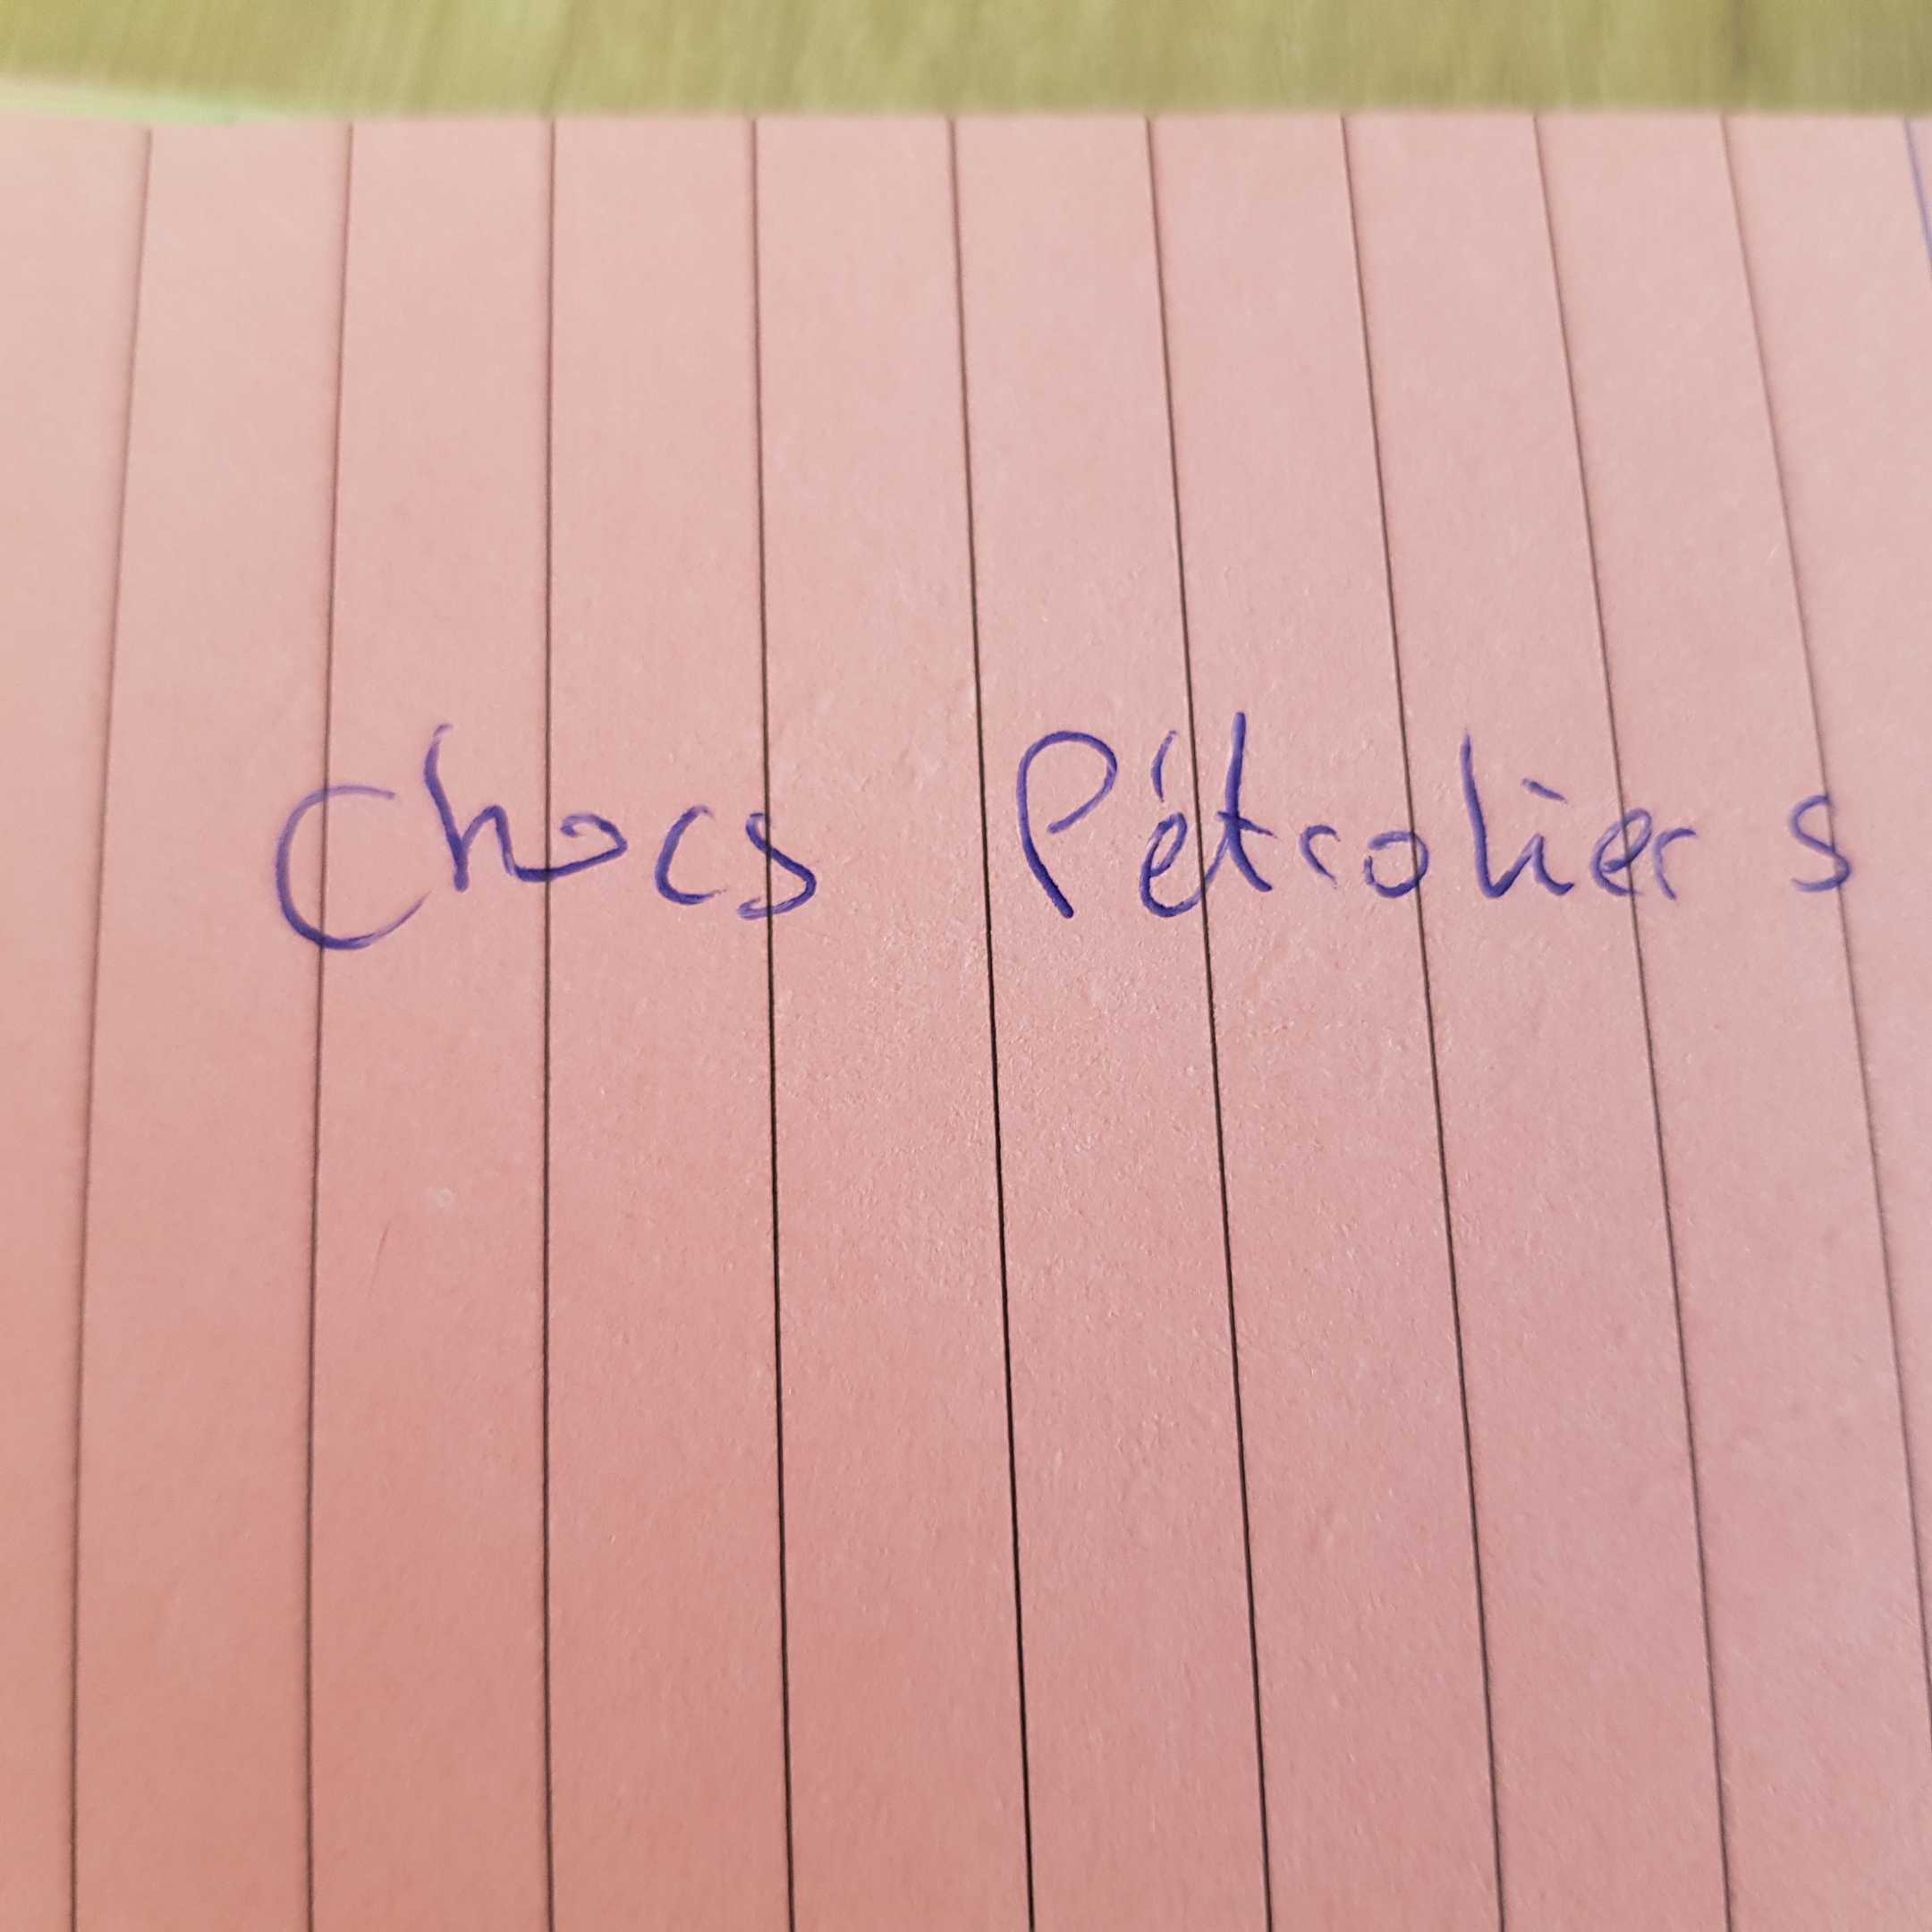 Chocs Pétroliers